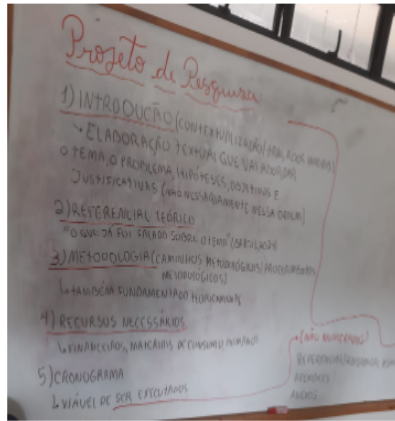 Projeto de Pesquisa
1) INTRODUÇÃO (CONTEXTUALIZAÇÃO/
ELABORAÇÃO TEXTUAL QUE VAI ABORDAR
O TEMA, O PROBLEMA, HIPÓTESES, OBJETIVOS E
JUSTIFICATIVAS (NÃO NECESSARIAMENTE NESSA ORDEM)
2) REFERENCIAL TEÓRICO
"O QUE JÁ FOI FALADO SOBRE O TEMA"
3) METODOLOGIA (CAMINHOS METODOLÓGICOS/PROCEDIMENTOS
METODOLÓGICOS)
TAMBÉM FUNDAMENTADO TEORICAMENTE
4) RECURSOS NECESSÁRIOS
FINANCEIROS, MATERIAIS DE CONSUMO HUMANOS
5) CRONOGRAMA
VIÁVEL DE SER EXECUTADOS
(NÃO NUMERADOS)
REFERÊNCIAS
APÊNDICES
ANEXOS